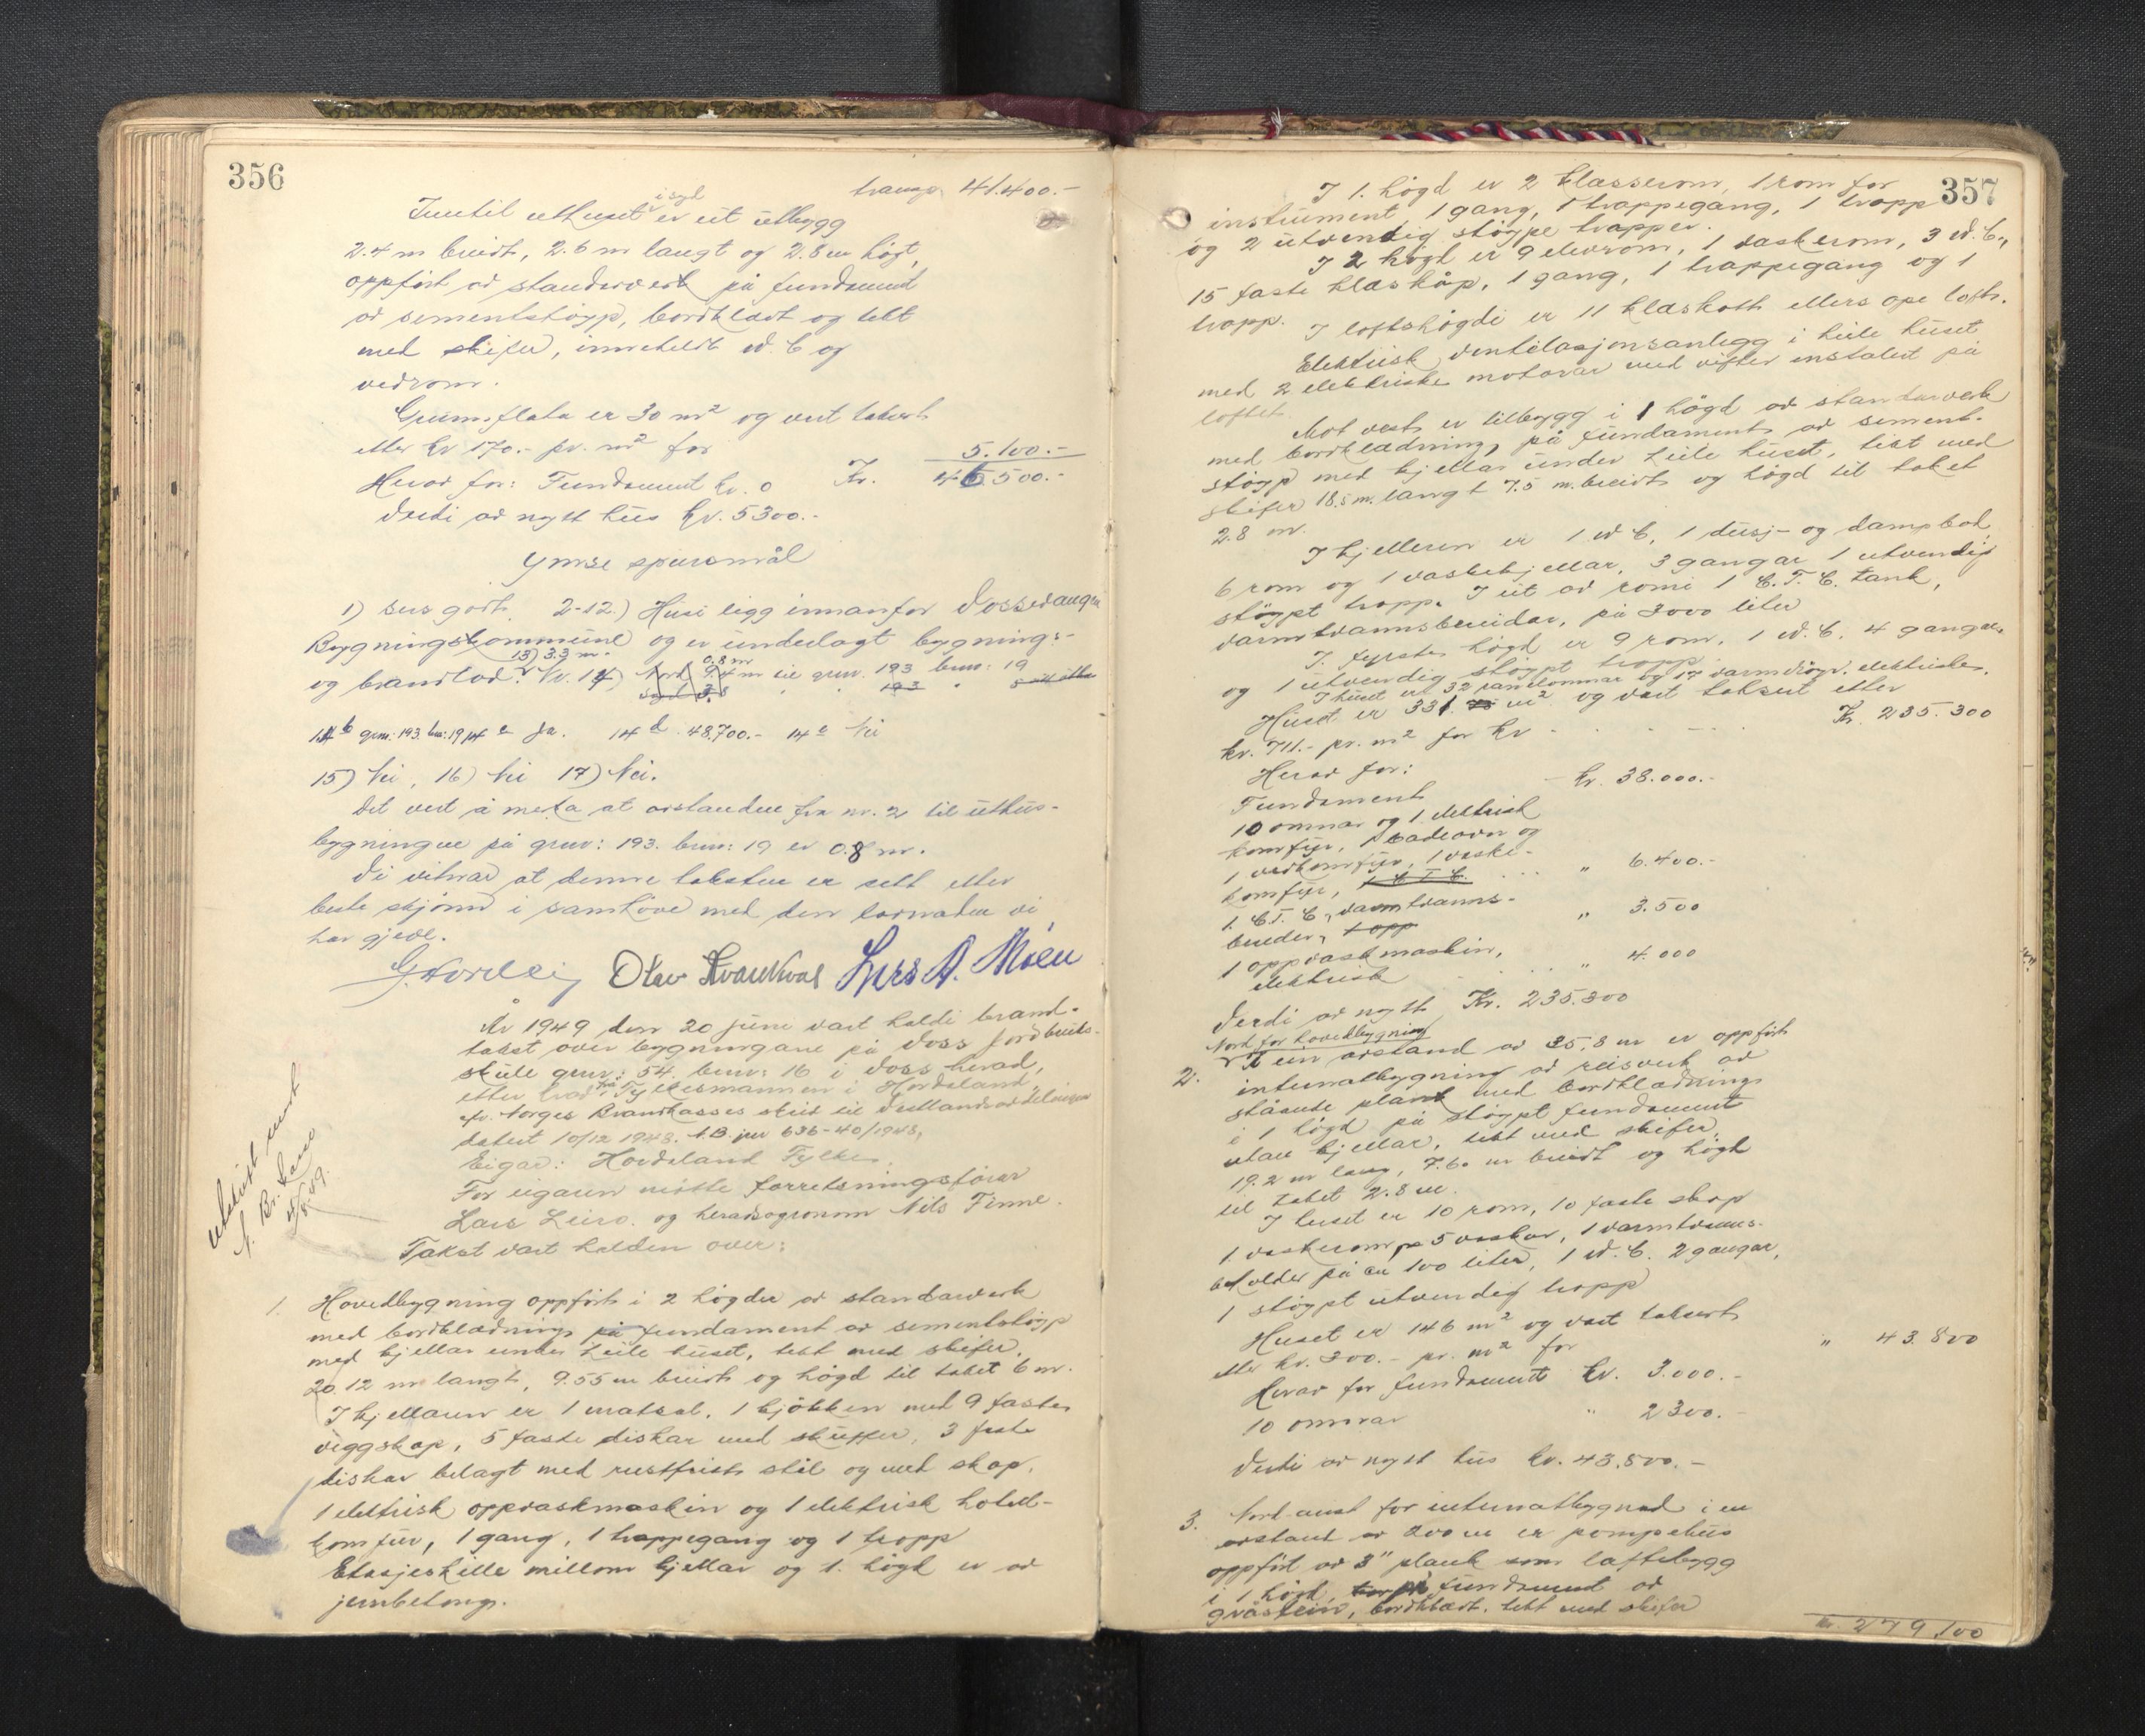 356
transp. 41.400.-
i syd
Inntil uthuset er eit utbygg
2.4 m breidt, 2.6 m langt og 2.8 m högt,
oppfört av standerverk på fundament
av sementstöyp, bordklædt og tekt
med skifer, inneheldt W.C og
vedrom.
Grunnflata er 30 m² og vert taksert
etter kr 170.- pr. m² for 5.100.-
Herav for: Fundament kr. 0 Kr. 46500.-
Verdi av nytt hus kr. 5300.-
Ymse spursmål
1) Sers godt 2-12.) Husi ligg innanfor Vossevangen
Bygningskommune og er underlagt bygnings-
13) 3.3 m. 0.8 m
og brandlov. Nr. 14) Nord 9.4 m til grnr. 193 brnr: 19
Syd 3.8 193
14 b grnr: 193 brnr: 19 14 c Ja. 14 d 48.700.- 14 e Nei
15) Nei, 16) Nei 17) Nei.
Det vert å merka at avstanden fra nr. 2 til uthus-
bygningen på grnr: 193. brnr: 19 er 0.8 m.
Vi vitnar at denne taksten er sett etter
beste skjönn i samhöve med den lovnaden vi
har gjeve.
Olav Kvarekval Lars A. Moen
År 1949 den 20 juni vart haldt brand-
takst over bygningane på Voss Jordbruks-
skule grnr: 54. brnr: 16 i Voss herad,
etter krav frå Fylkesmannen i Hordaland,
cfr. Norges Brandkasses skriv til Vestlandsavdelingen
datert 10/12 1948. A.B. jnr 636-40/1948,
Eigar: Hordaland Fylke.
For eigaren mötte forretningsförar
Lars Leiro. og heradsagronom Nils Finne.
Takst vart halden over:
utskrift sendt
N. Br. kasse
1. Hovedbygning oppfört i 2 högder av standarverk
med bordklædning, på fundament av sementstöyp
med kjellar under heile huset, tekt med skifer,
20.12 m langt, 9.55 m breidt og högd til taket 6 m.
I kjellaren er 1 matsal, 1 kjökken med 9 faste
veggskap, 5 faste diskar med skuffer, 3 faste
diskar belagt med rustfritt stål og med skap,
1 elektrisk oppvaskmaskin og 1 elektrisk hotell-
komfur, 1 gang, 1 trappegang og 1 tropp
Etasjeskille millom kjellar og 1. högd er av
jernbetong.
357
I 1. högd er 2 klasserom, 1 rom for
instrument, 1 gang, 1 trappegang, 1 tropp
og 2 utvendig stöypte trapper.
I 2 högd er 9 elevrom, 1 vaskerom, 3 W.C.,
15 faste klæskåp, 1 gang, 1 trappegang og 1
tropp.
I loftshögdi er 11 klæskott ellers ope loft.
Elektrisk ventilasjonsanlegg i heile huset
med 2 elektriske motorar med vifter instalert på
loftet.
Mot vest er tilbygg i 1 högd av standarverk
med bordklædning, på fundament av sement-
stöyp med kjellar under heile huset, tekt med
skifer 18.5 m. langt 7.5 m. breidt og högd til taket
2.8 m.
I kjelleren er 1 W.C, 1 dusj- og dampbad,
6 rom og 1 vaskekjellar, 3 gangar 1 utvendig
stöypt tropp. I eit av romi 1 C.T.C. tank,
varmtvannsbereidar, på 3000 liter
I fyrste högd er 9 rom, 1 W.C. 4 gangar,
og 1 utvendig stöypt tropp.
I huset er 32 vanslommar og 17 varmeovn. elektriske.
Huset er 331 m² og vart taksert etter
kr. 711.- pr. m² for kr - - - - Kr. 235.300
Herav for:
Fundament - kr. 38.000.-
10 omnar og 1 elektrisk
komfyr, 1 badeovn og
1 vedkomfyr, 1 vaske-
komfyr, 1 C T C. ... " 6.400.-
1. C.T.C, varmtvanns-
bereder, 1 opp " 3.500
1 oppvaskmaskin,
elektrisk - .... " 4.000
Verdi av nytt Kr. 235.300
Nord for hovedbygning
2. I ein avstand av 35.8 m er oppfört
internatbygning av reisverk av
ståande plank med bordklædning
i 1 högd på stöypt fundament
utan kjellar, tekt med skifer,
19.2 m lang, 7.60 m breidt og högd
til taket 2.8 m.
I huset er 10 rom, 10 faste skap
1 vaskerom på 5 vaskar, 1 varmtvanns-
beholder på ca 100 liter, 1 W.C. 2 gangar,
1 stöypt utvendig tropp
Huset er 146 m² og vart taksert
etter kr. 300.- pr. m² for " 43.800
Herav for fundament kr. 3.000.-
10 omnar " 2300.-
Verdi av nytt hus kr. 43.800.-
3. Nord-aust for internatbygnad i en
avstand av 200 m er pompehus
oppfört av 3" plank som laftebygg
i 1 högd, på fundament av
gråstein, bordklædt. tekt med skifer
kr. 279.100